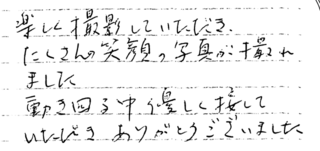 楽しく撮影していただき、
たくさんの笑顔の写真が撮れ
ました
動き回る中、優しく接して
いただき ありがとうございました